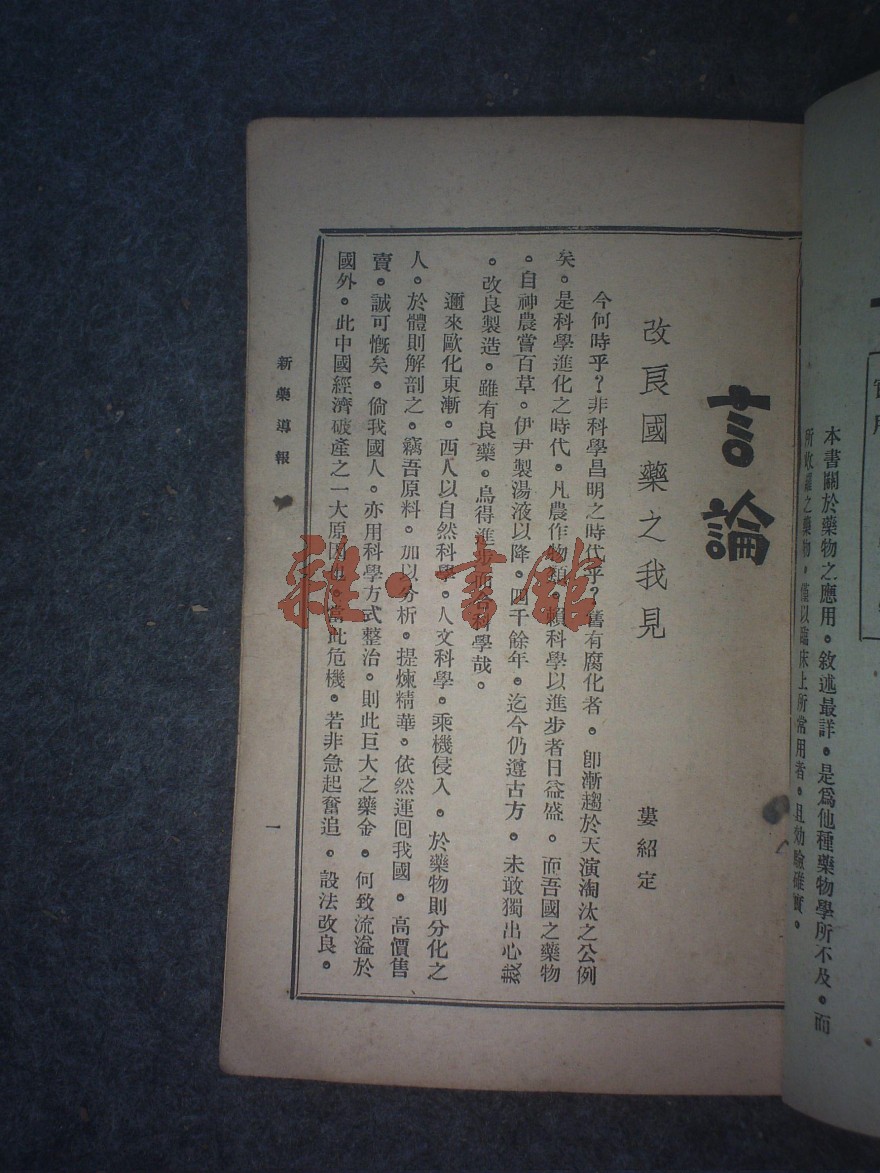 本書關於藥物之應用。敘述最詳。是爲他種藥物學所不及。而
所收羅之藥物。僅以臨床上所常用者。且効驗確實。
言論
改良國藥之我見
婁紹定
今何時乎？非科學昌明之時代乎？舊有腐化者。卽漸趨於天演淘汰之公例
矣。是科學進化之時代。凡農作物類。賴科學以進步者日益盛。而吾國之藥物
。自神農嘗百草。伊尹製湯液以降。四千餘年。迄今仍遵古方。未敢獨出心
。改良製造。雖有良藥。烏得進步而合科學哉。
邇來歐化東漸。西人以自然科學。人文科學。乘機侵入。於藥物則分化之
人。於體則解剖之。竊吾原料。加以分析。提煉精華。依然運囘我國。高價售
賣。誠可慨矣。倘我國人。亦用科學方式整治。則此巨大之藥金。何致流溢於
國外。此中國經濟破產之一大原因也。當此危機。若非急起奮追。設法改良。
新藥導報
一
雜·書館